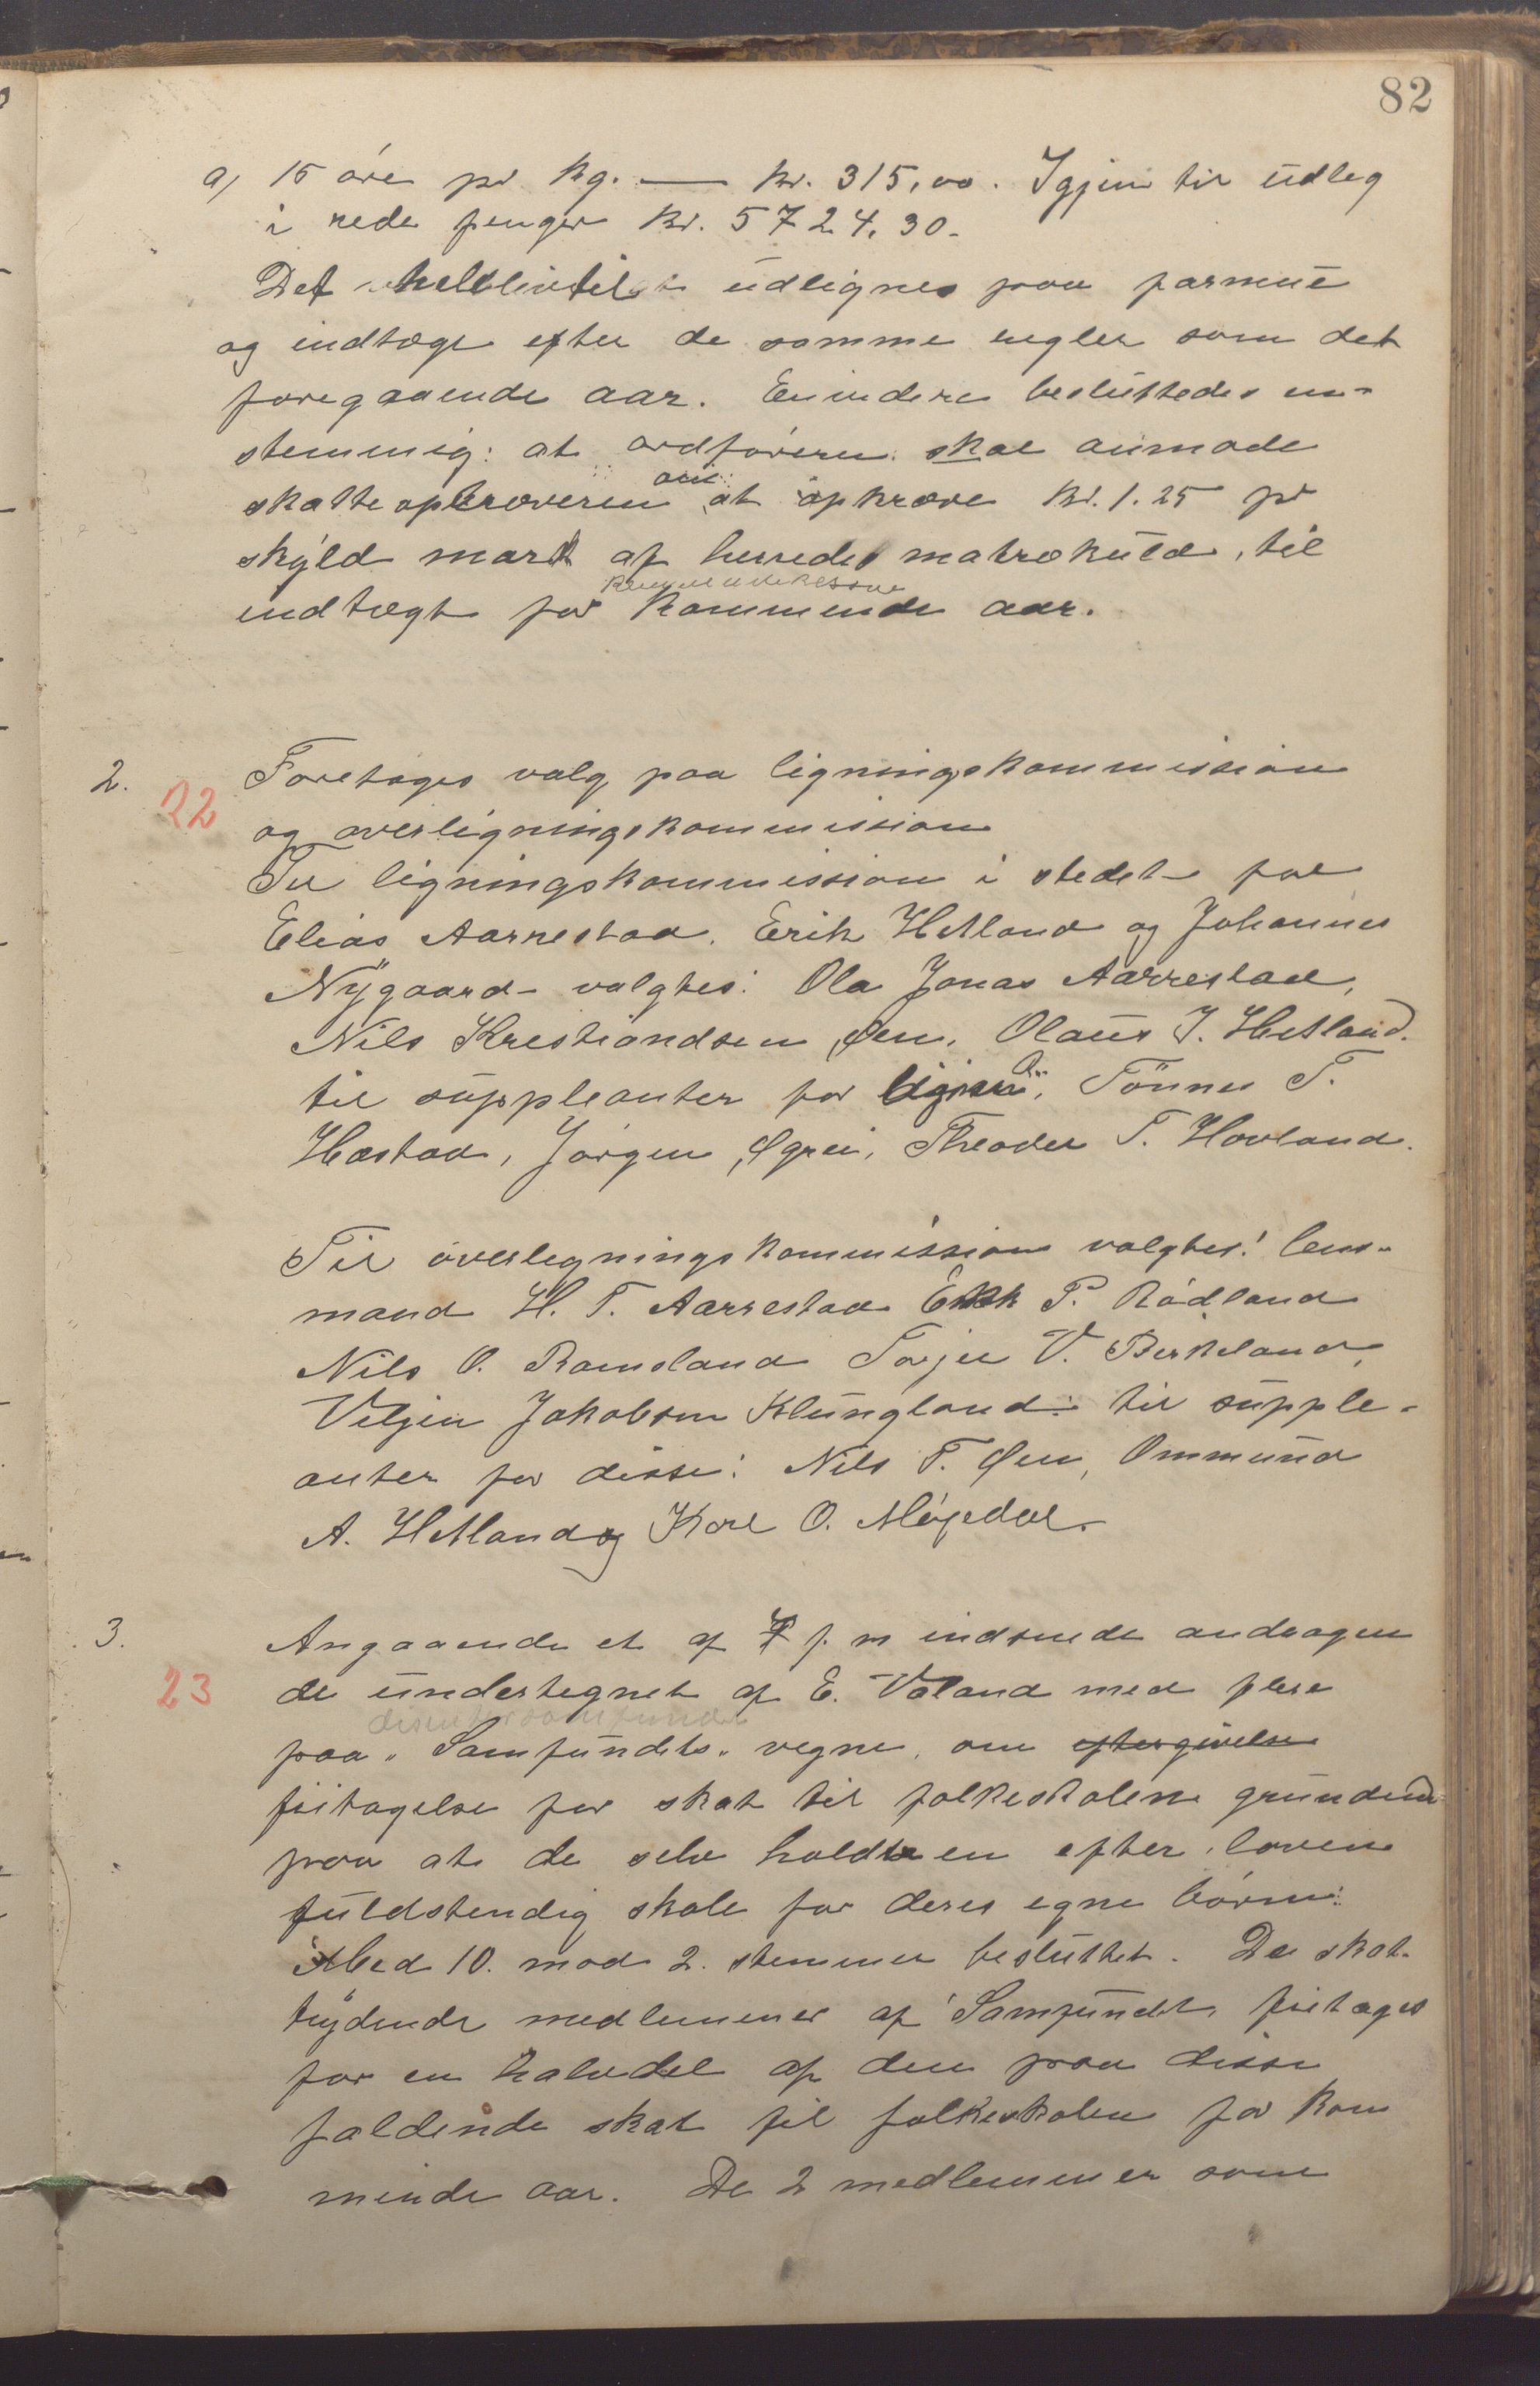 82
a) 15 öre pr kg. — kr. 315,00. Igjen til udleg
i rede penger kr. 5724,30.
Det udlignes paa formue
og indtægt efter de samme regler som det
foregaaende aar. Envidere besluttedes en-
stemmig: at ordföreren skal anmode
om
skatteopkræveren at opkræve kr. 1.25 pr
skyld mark af herredes matrekuld, til
kommunekassen
indtægt for kommende aar.
2.
22
Foretages valg paa ligningskommission
og overligningskommission
Til ligningskommission i stedet for
Elias Aarrestad, Erik Hetland og Johannes
Nygaard - valgtes: Ola Jonas Aarrestad,
Nils Krestiandsen Øen, Olaus J. Hetland.
til suppleanter for Tönnes T.
Hæstad, Jörgen Øgrei, Theoder T. Hovland.
Til overlegningskommission valgtes: lens-
mand H. T. Aarrestad Erik P. Rödland
Nils O. Ramsland Torjer V. Birkeland,
Veljen Jakobsen Klungland: til supple-
anter for disse: Nils T. Øen, Ommund
A. Hetland og Karl O. Möjedal.
3.
23
Angaaende et af f. m indsende andragen
de undertegnet af E. Væland med flere
disentersamfundet
paa "Samfundets" vegne, om eftergivelse
fritagelse for skat til folkeskolen grundend
paa at de selv holdt en efter loven
fuldstendig skole for deres egne börn:
Med 10. mod 2. stemmer besluttet. De skat-
tydende medlemmer af Samfundet fritages
for en halvdel af den paa disse
faldende skat til folkeskolen for kom
mende aar. De 2 medlemmer som